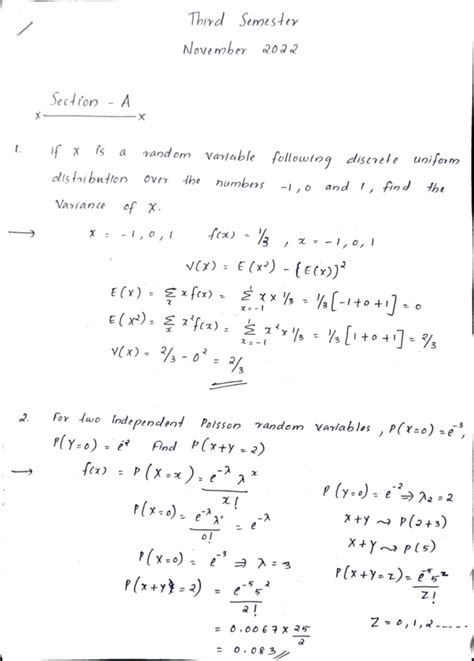 Third Semester
November 2022
Section - A
x x
1. If x is a random variable following discrete uniform
distribution over the numbers -1,0 and 1, find the
Variance of X.
→ x = -1, 0, 1 f(x) = 1/3 , x = -1, 0, 1
V(X) = E(x²) - {E(x)}²
E(X) = Σₓ x f(x) = Σ¹ₓ₌₋₁ x × 1/3 = 1/3 [-1+0+1] = 0
E(X²) = Σₓ x² f(x) = Σ¹ₓ₌₋₁ x² × 1/3 = 1/3 [1+0+1] = 2/3
V(X) = 2/3 - 0² = 2/3
2. For two independent Poisson random variables, P(X=0) = e⁻³,
P(Y=0) = e⁻² Find P(X+Y=2)
→ f(x) = P(X=x) = e^-λ λ^x / x!
P(X=0) = e^-λ λ⁰ / 0! = e^-λ
P(X=0) = e⁻³ ⇒ λ = 3
P(X+Y=2) = e⁻⁵ 5² / 2!
= 0.0067 × 25/2
= 0.083
P(Y=0) = e⁻² ⇒ λ₂ = 2
X+Y ~ P(2+3)
X+Y ~ P(5)
P(X+Y=Z) = e⁻⁵ 5^z / Z!
Z = 0, 1, 2 .....